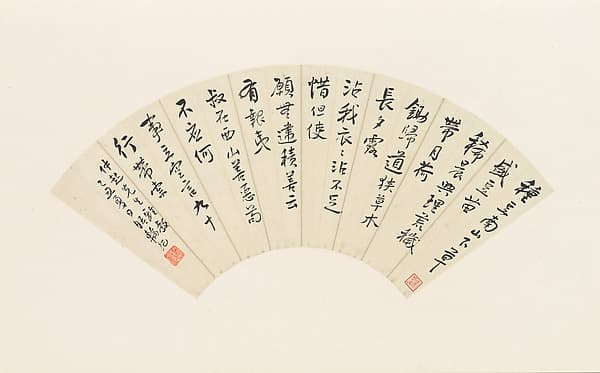 種豆南山下草
盛豆苗
稀晨興理荒穢
帶月荷
鋤歸道狹草木
長夕露
沾我衣〻沾不足
惜但使
願無違積善云
有報夷
叔在西山善惡苟
不應何
事立空言九十
行帶索
先生